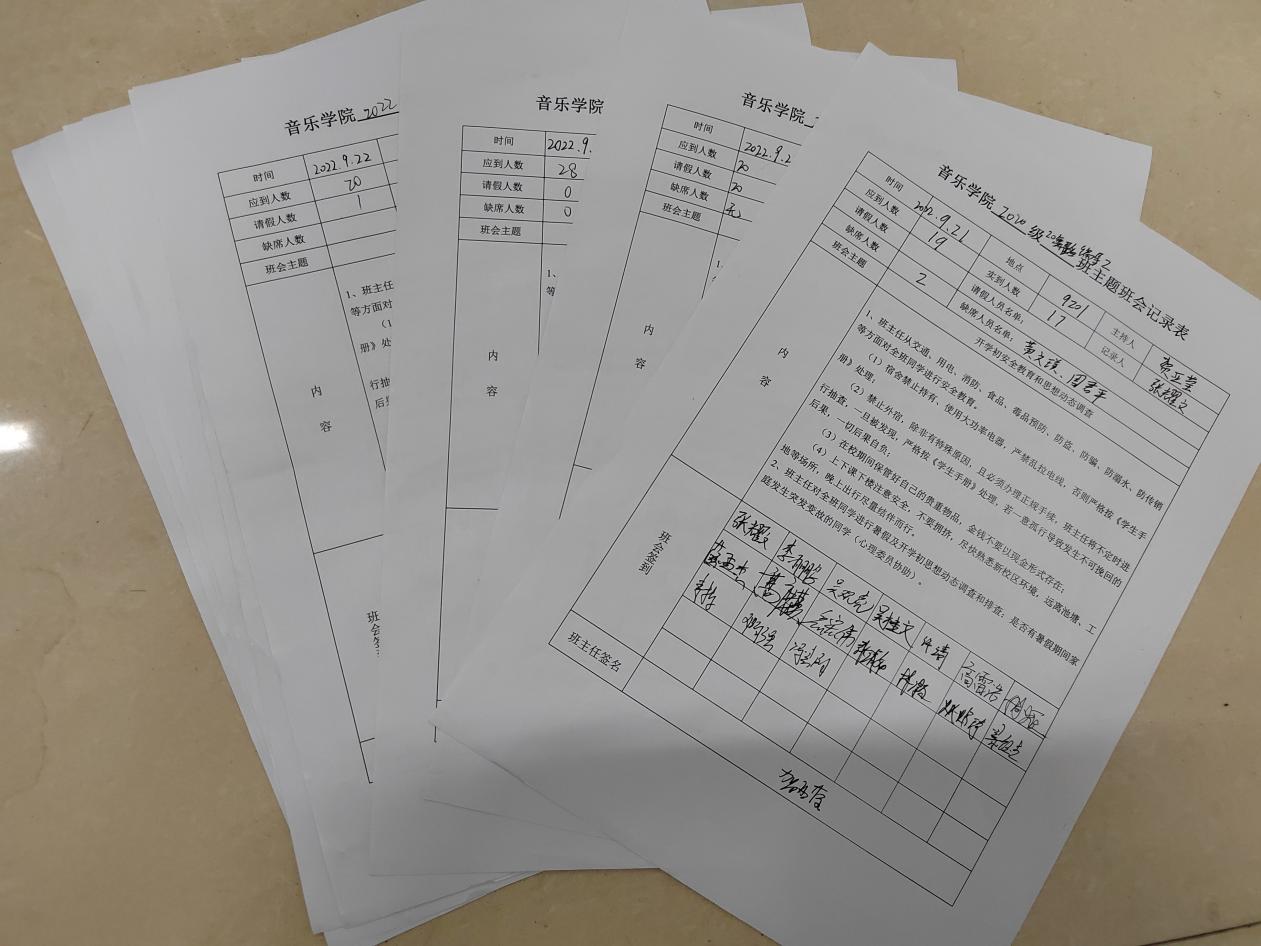 音乐学院 2022
时间 2022.9.22
应到人数 20
请假人数 1
缺席人数
班会主题
1、班主任
等方面对
（1
册》处
行抽
后果
内
容
班会签
音乐学院
时间 2022.9.
应到人数 28
请假人数 0
缺席人数 0
班会主题
1、
等
内
容
音乐学院
时间 2022.9.2
应到人数 20
请假人数 20
缺席人数 无
班会主题
1、
内
容
音乐学院 2020 级 班主题班会记录表
时间 2022.9.21 地点 9201 主持人
应到人数 19 实到人数 17 记录人 张耀文
请假人数 请假人员名单：
缺席人数 2 缺席人员名单：
班会主题 开学初安全教育和思想动态调查
内
容
1、班主任从交通、用电、消防、食品、毒品预防、防盗、防骗、防溺水、防传销
等方面对全班同学进行安全教育。
（1）宿舍禁止持有、使用大功率电器，严禁乱拉电线，否则严格按《学生手
册》处理；
（2）禁止外宿，除非有特殊原因，且必须办理正规手续，班主任将不定时进
行抽查，一旦被发现，严格按《学生手册》处理，若一意孤行导致发生不可挽回的
后果，一切后果自负；
（3）在校期间保管好自己的贵重物品，金钱不要以现金形式存在；
（4）上下课下楼注意安全，不要拥挤，尽快熟悉新校区环境，远离池塘、工
地等场所，晚上出行尽量结伴而行。
2、班主任对全班同学进行暑假及开学初思想动态调查和排查：是否有暑假期间家
庭发生突发变故的同学（心理委员协助）。
班会签到
班主任签名